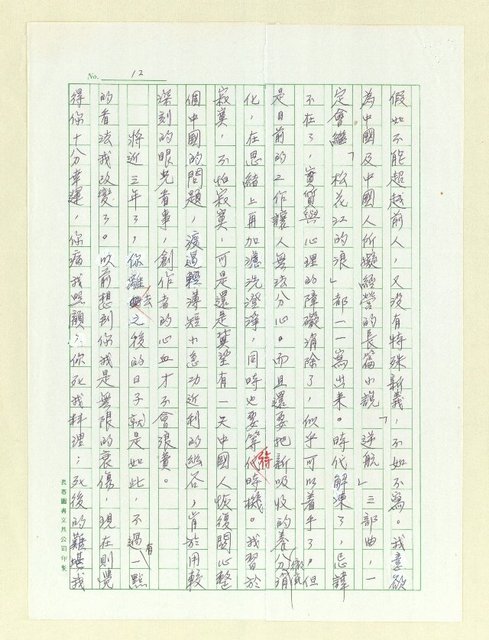 No. 12
假如不能超越前人，又沒有特殊新義，不如不寫。我意欲
為中國及中國人所擬經營的長篇小說「逆航」三部曲，一
定會繼「松花江的浪」部一一寫出來。時代解凍了，忌諱
不在了，實質與心理的障礙消除了，似乎可以着手了，但
是目前的工作讓人無法分心。而且還要把新吸收的養分消
化，在思緒上再加濾洗澄淨，同時也要等待時機。我習於
寂寞，不怕寂寞，可是還是冀望有一天中國人恢復關心整
個中國的問題，渡過輕薄短小急功近利的幽谷，肯於用較
深刻的眼光看事，創作者的心血才不會浪費。
將近三年了，你離去之後的日子就是如此，不過有一點
的看法我改變了。以前想到你我是無限的哀傷，現在則覺
得你十八分幸運，你病我照顧，你死我料理；死後的難堪我
長春圖再文具公司印製